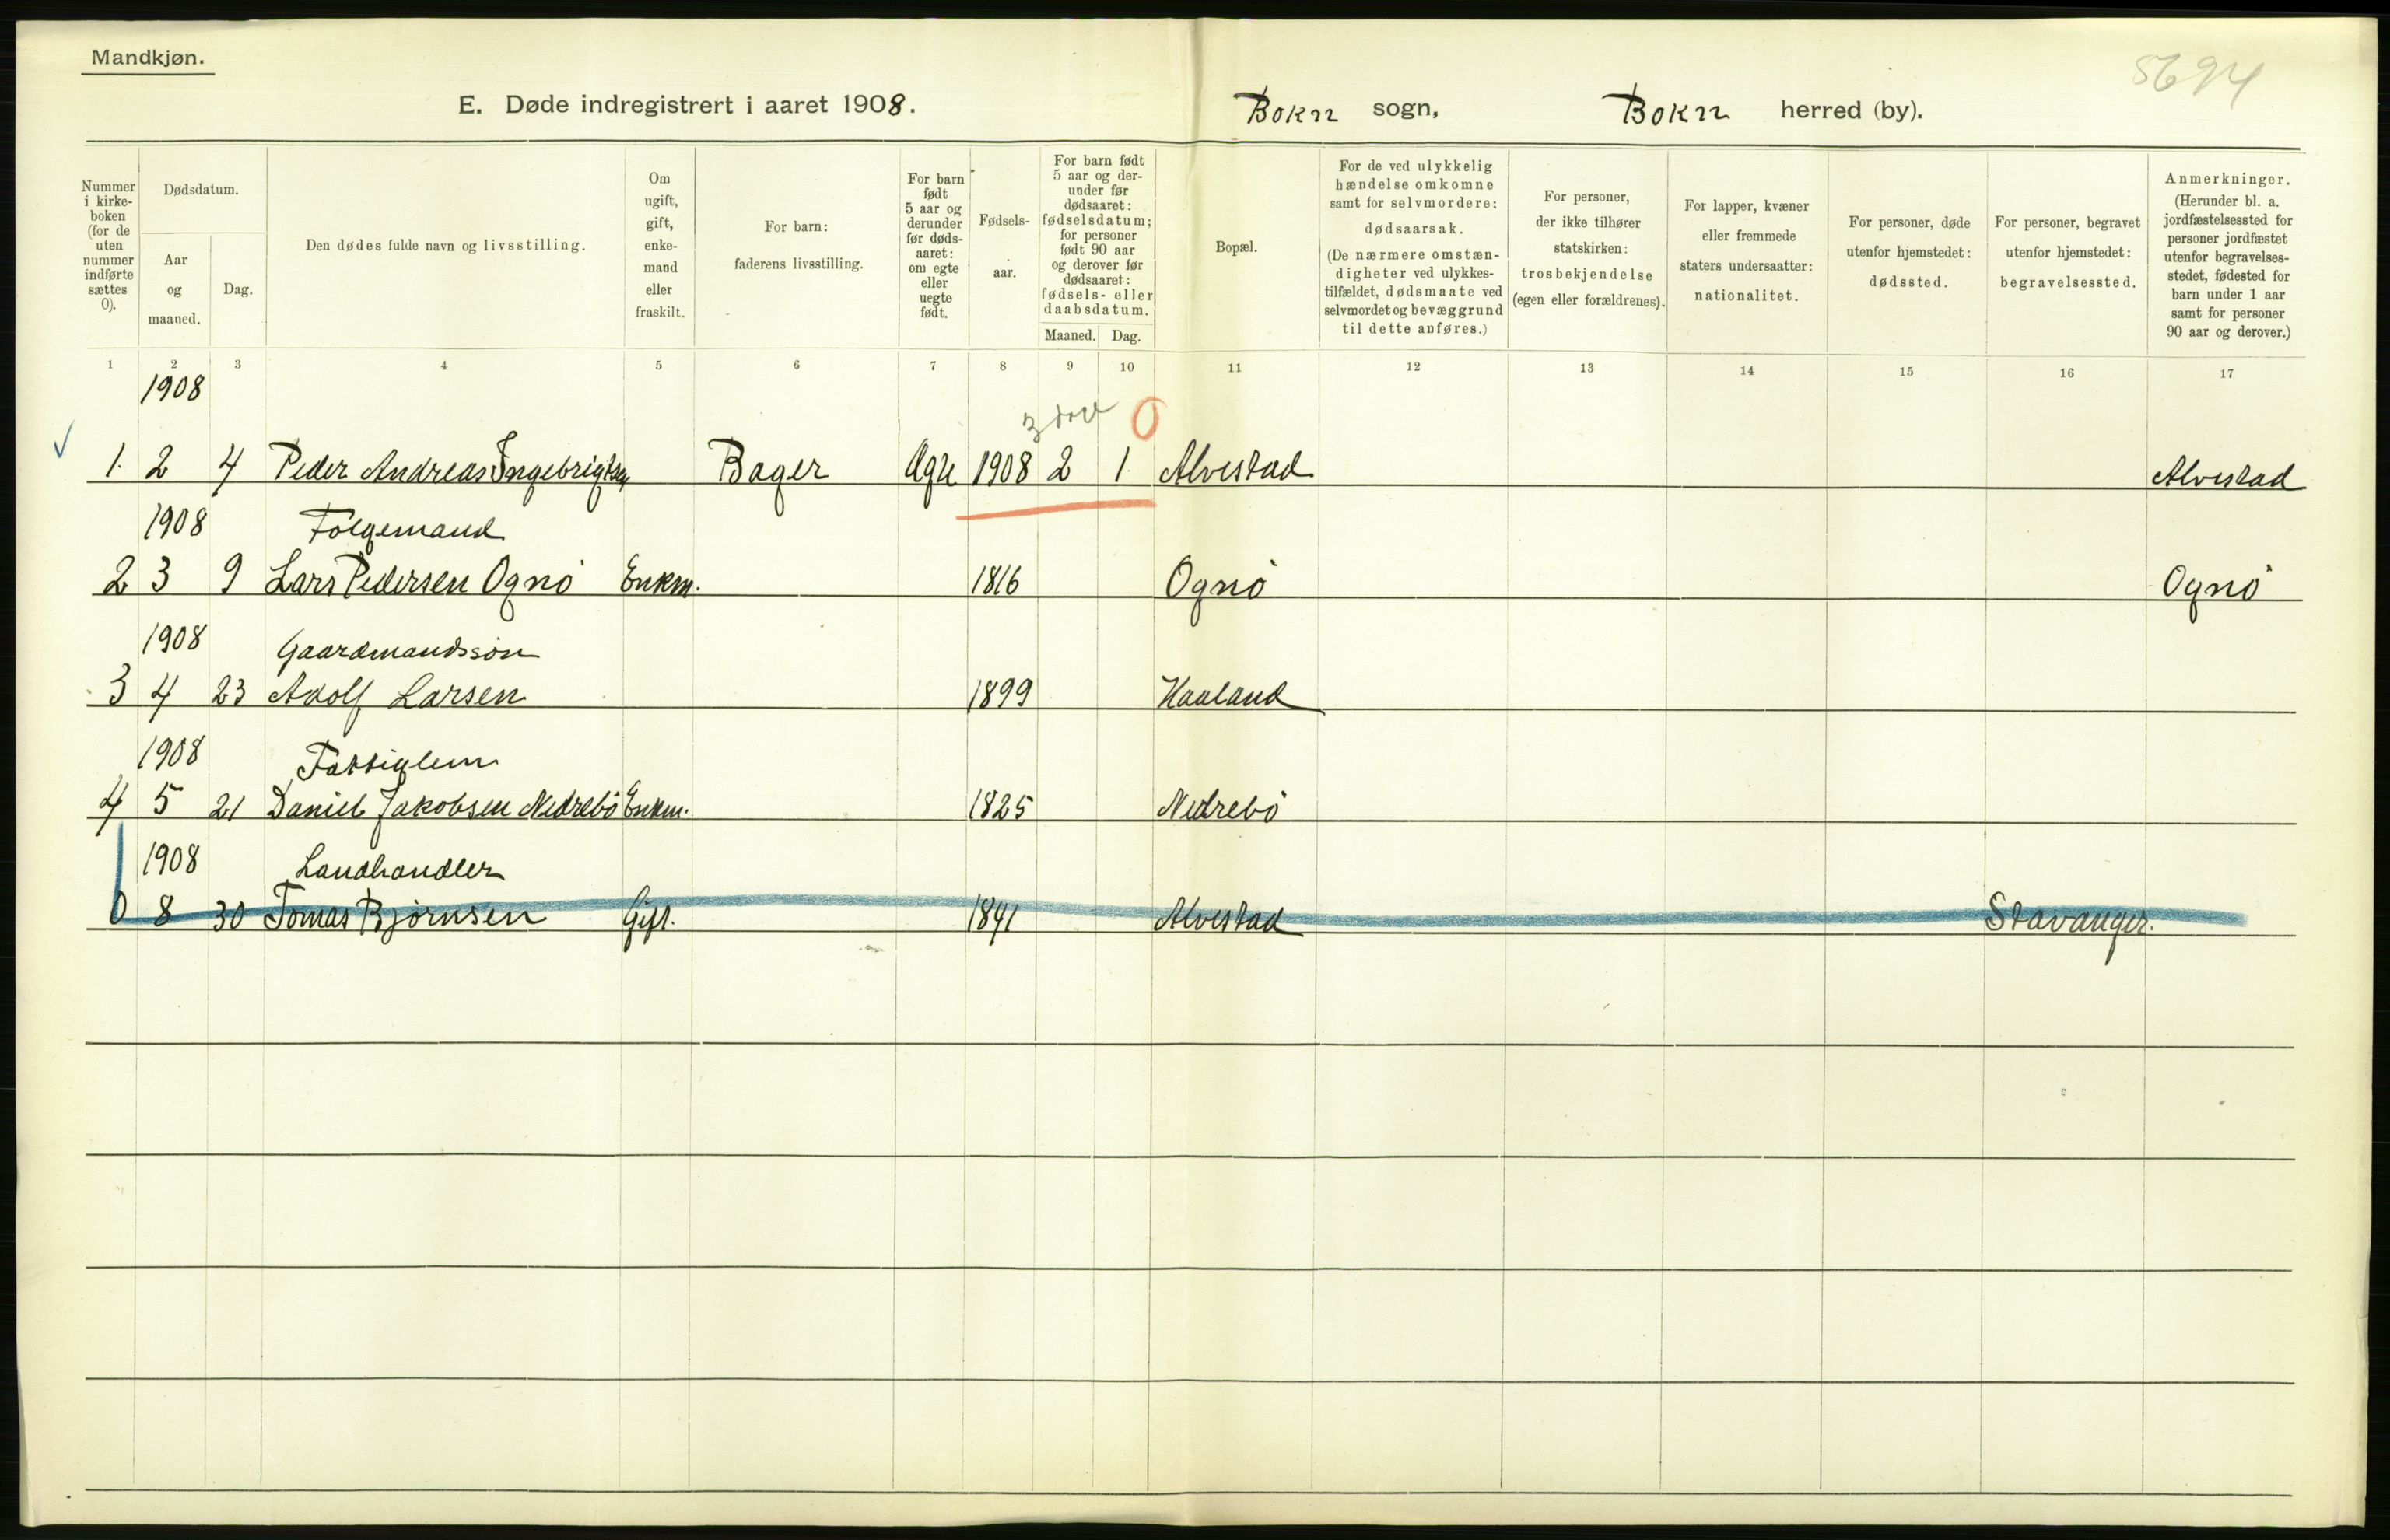 Mandkjøn.
5694
E. Døde indregistrert i aaret 1908.
Bokn sogn, Bokn herred (by).
Nummer i kirke-boken (for de uten nummer indførte sættes 0).
Dødsdatum.
Aar og maaned.
Dag.
Den dødes fulde navn og livsstilling.
Om ugift, gift, enke-mand eller fraskilt.
For barn: faderens livsstilling.
For barn født 5 aar og derunder før døds-aaret: om egte eller uegte født.
Fødsels-aar.
For barn født 5 aar og der-under før dødsaaret: fødselsdatum; for personer født 90 aar og derover før dødsaaret: fødsels- eller daabsdatum.
Maaned. Dag.
Bopæl.
For de ved ulykkelig hændelse omkomne samt for selvmordere: dødsaarsak. (De nærmere omstæn-digheter ved ulykkes-tilfældet, dødsmaate ved selvmordet og bevæggrund til dette anføres.)
For personer, der ikke tilhører statskirken: trosbekjendelse (egen eller forældrenes).
For lapper, kvæner eller fremmede staters undersaatter: nationalitet.
For personer, døde utenfor hjemstedet: dødssted.
For personer, begravet utenfor hjemstedet: begravelsessted.
Anmerkninger. (Herunder bl. a. jordfæstelsessted for personer jordfæstet utenfor begravelses-stedet, fødested for barn under 1 aar samt for personer 90 aar og derover.)
1 2 3 4 5 6 7 8 9 10 11 12 13 14 15 16 17
1908
0
1. 2 4 Peder Andreas Ingebrigtsen Bager Ægte 1908 2 1. Alvestad Alvestad
1908 Folgemand
2 3 9 Lars Pedersen Ognö Enkm. 1816 Ognö Ognö
1908 Gaardmandssön
3 4 23 Adolf Larsen 1899 Haaland
1908 Fattiglem
4 5 21 Daniel Jakobsen Nedrebö Enkm. 1825 Nedrebö
1908 Landhandler
0 8 30 Tomas Bjørnsen Gift. 1841 Alvestad Stavanger.